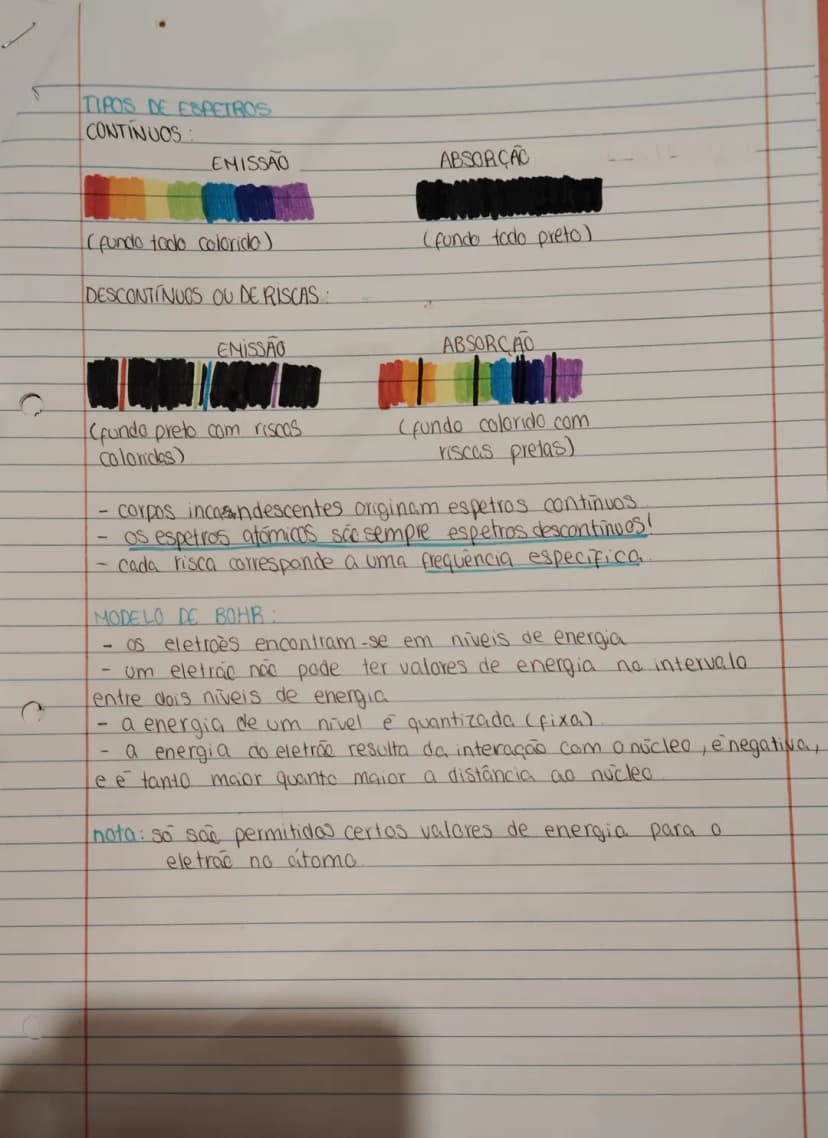 TIPOS DE ESPETROS
CONTÍNUOS:
EMISSÃO
ABSORÇÃO
(fundo todo colorido)
(fundo todo preto)
DESCONTÍNUOS OU DE RISCAS:
EMISSÃO
ABSORÇÃO
(fundo preto com riscas
coloridas)
(fundo colorido com
riscas pretas)
- corpos incandescentes originam espetros contínuos.
- os espetros atómicos são sempre espetros descontínuos!
- cada risca corresponde a uma frequência específica.
MODELO DE BOHR:
- os eletrões encontram-se em níveis de energia
- um eletrão não pode ter valores de energia no intervalo
entre dois níveis de energia
- a energia de um nível é quantizada (fixa)
- a energia do eletrão resulta da interação com o núcleo, é negativa,
e é tanto maior quanto maior a distância ao núcleo
nota: só são permitidos certos valores de energia para o
eletrão no átomo